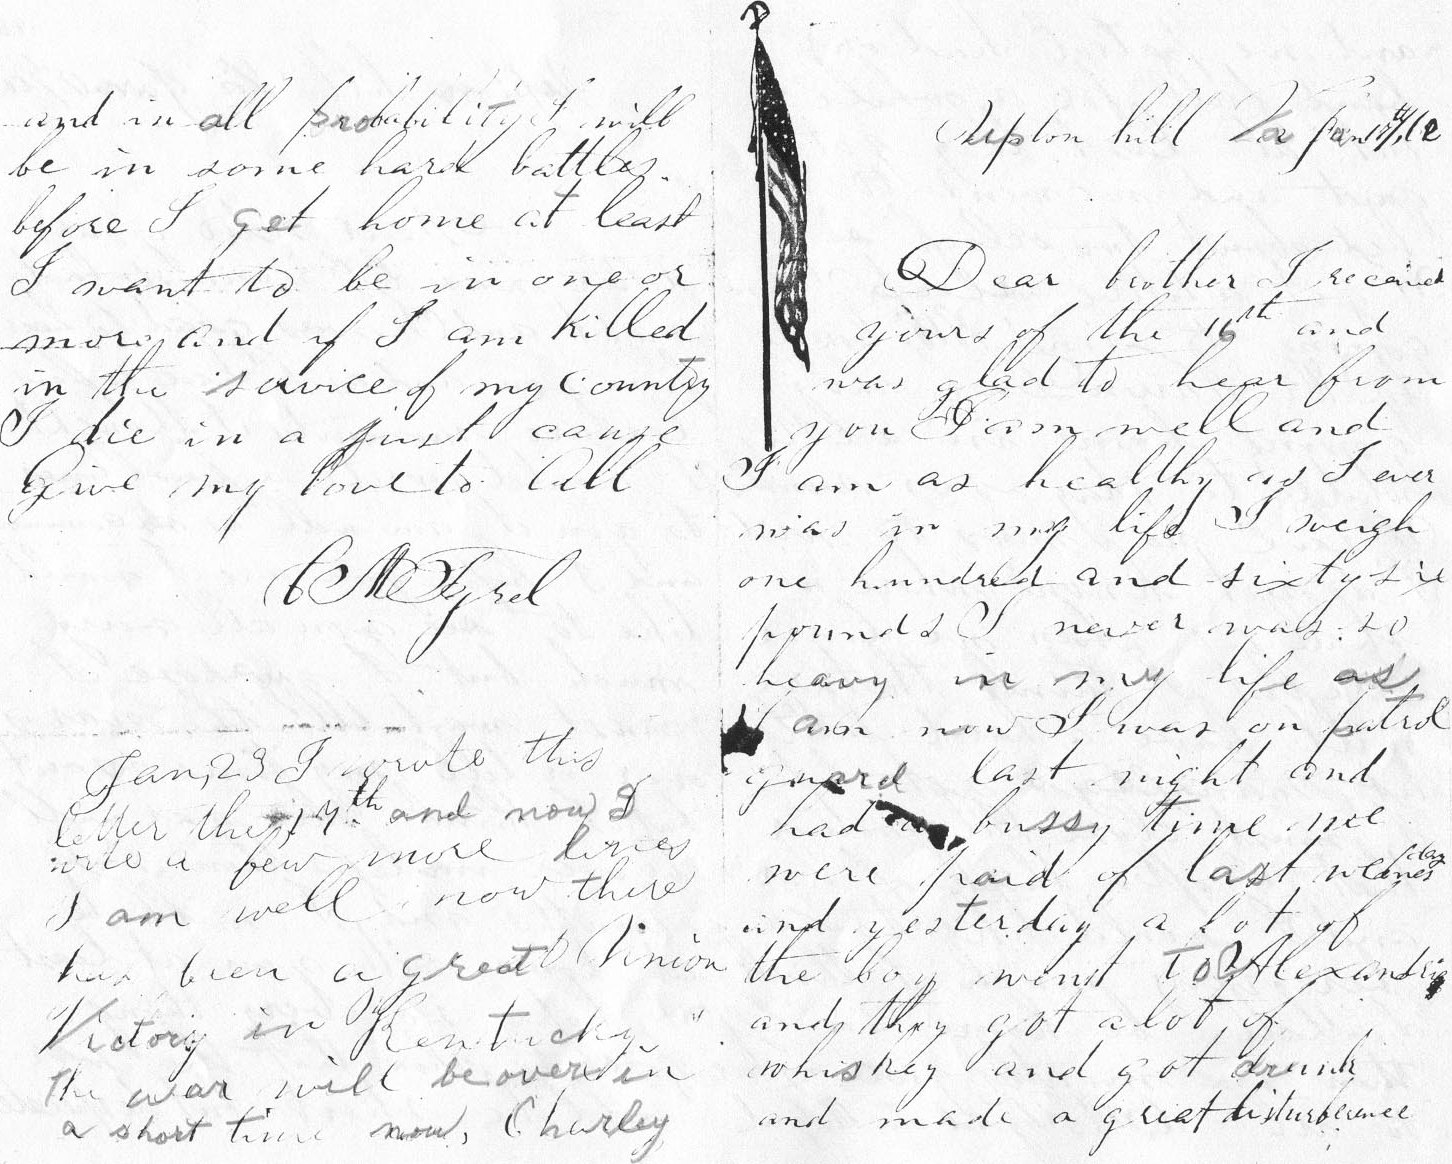 Upton hill Va Jan 17th/62
Dear brother I received
yours of the 16th and
was glad to hear from
you I am well and
I am as healthy as I ever
was in my life I weigh
one hundred and sixty six
pounds I never was so
heavy in my life as
I am now I was on patrol
guard last night and
had a bussy time we
were paid of last wednesday
and yesterday a lot of
the boy went to Alexandria
and they got a lot of
whiskey and got drunk
and made a great disturbence
and in all probability I will
be in some hard battles
before I get home at least
I want to be in one or
more and if I am killed
in the service of my country
I die in a just cause
Give my love to All
C M Tyrel
Jan, 23 I wrote this
letter the 17th and now I
write a few more lines
I am well now there
has been a great Union
Victory in Kentucky
the war will be over in
a short time now, Charley